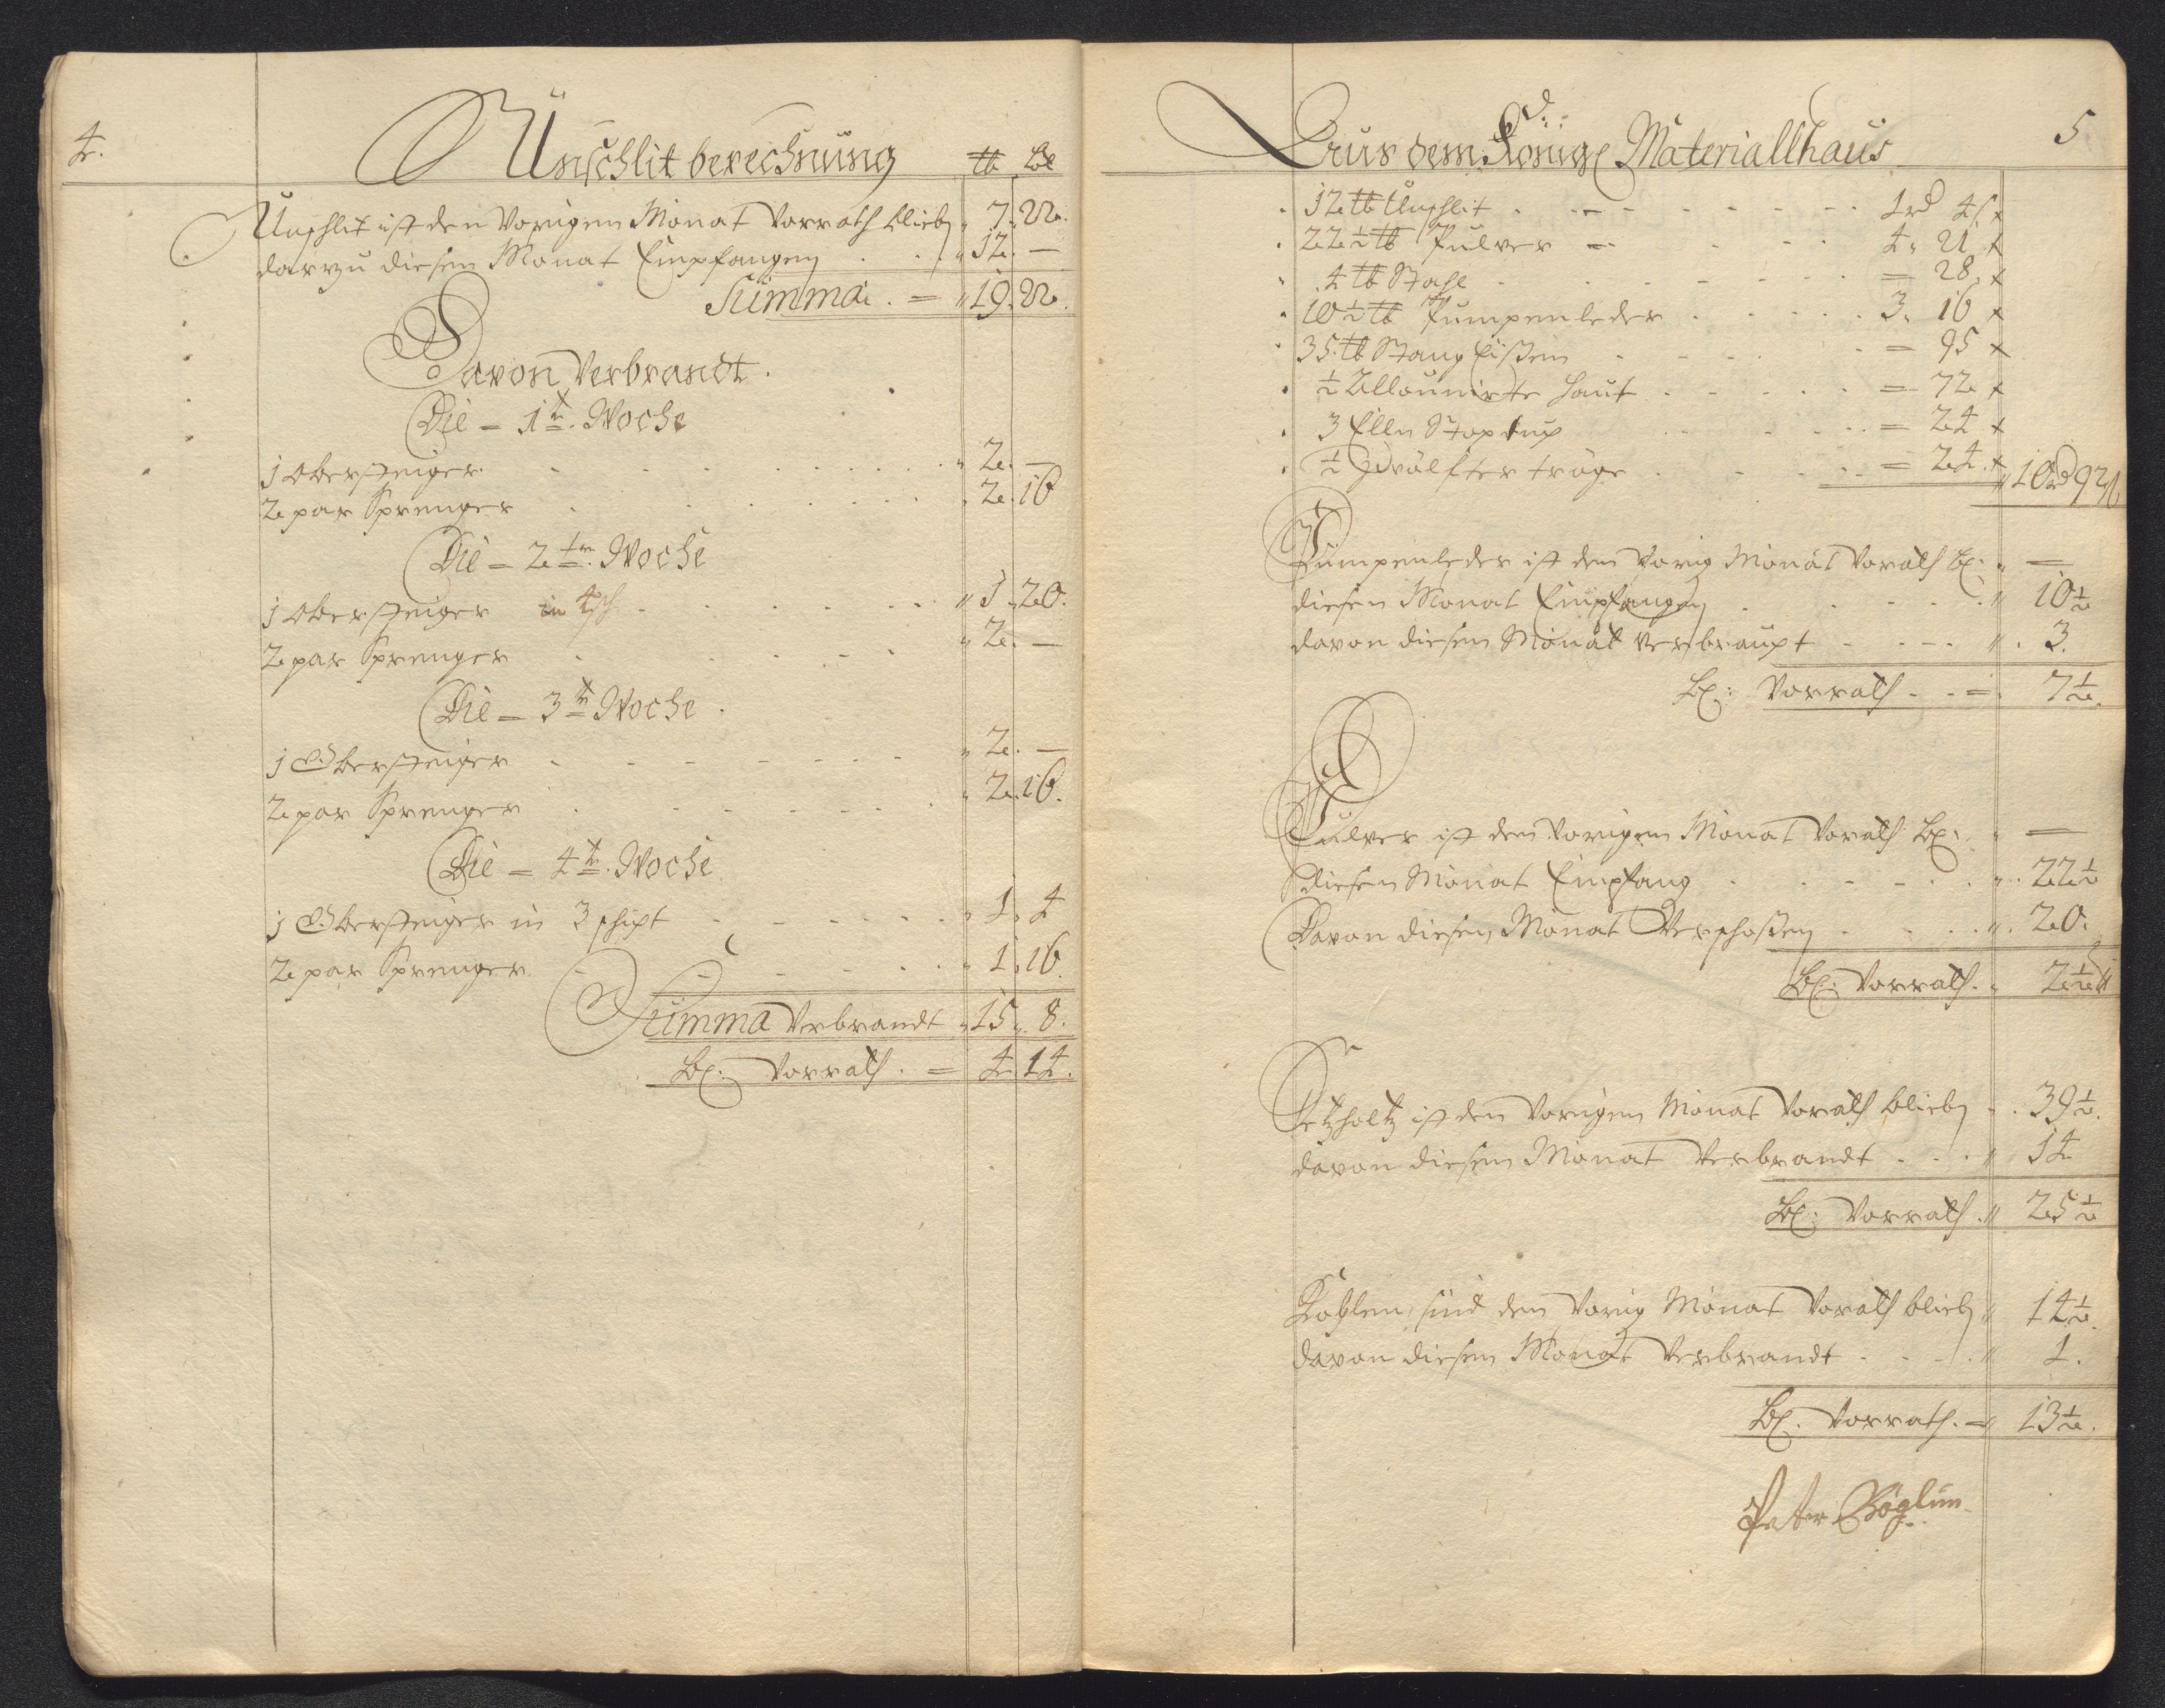 4.
Unschlit berechnung ℔ Lot
Unschlit ist den Vorigen Monat Vorrath blieb " 7. 22.
darzu diesen Monat Empfangen . . " 12. —
Summa. = " 19. 22.
Davon Verbrandt.
Die = 1te. Woche
1 Obersteiger . . . " 2. —
2 par Sprenger . . . 2. 16
Die = 2te. Woche
1 Obersteiger in 4 sch. . . . " 1. 20.
2 par Sprenger . . . " 2. —
Die = 3te Woche.
1 Obersteiger . . . " 2. —
2 par Sprenger . . . " 2. 16.
Die = 4te. Woche
1 Obersteiger in 3 schicht . . . " 1. 4
2 par Sprenger . . . " 1. 16.
Summa Verbrandt " 15 " 8.
Bl: Vorrath. = 4. 14.
5
Aus dem Königl Materiallhaus
12 ℔ Unschlit . . . 1 rd 45 x
22 ½ ℔ Pulver . . . 4 " 21 x
4 ℔ Stahl . . . = 28. x
10 ½ ℔ Pumpenleder . . . 3. 16 x
35. ℔ Stang Eißen . . . = 95 x
½ Allaunirte Haut . . . = 72 x
3 Elln Stoptuch . . . = 24 x
½ Zwölfter tröge . . . = 24. x " 10 rd 92
Pumpenleder ist den Vorig Monat Vorath bl: " —
diesen Monat Empfangen . . . " 10 ½
davon diesen Monat Verbraucht . . . " 3.
Bl: Vorrath. . = . 7 ½.
Pulver ist den Vorigen Monat Vorath bl: " —
diesen Monat Empfang . . . " 22 ½
Davon diesen Monat Verschoßen . . . " 20.
Bl: Vorrath. " 2 ½
Setzholtz ist den Vorigen Monat Vorath blieb " 39 ½.
davon diesen Monat Verbrandt . . . " 14
Bl: Vorrath. " 25 ½
Kohlen sind den Vorig Monat Vorath blieb " 14 ½.
davon diesen Monat Verbrandt . . . " 1.
Bl. Vorrath. = " 13 ½.
Peter